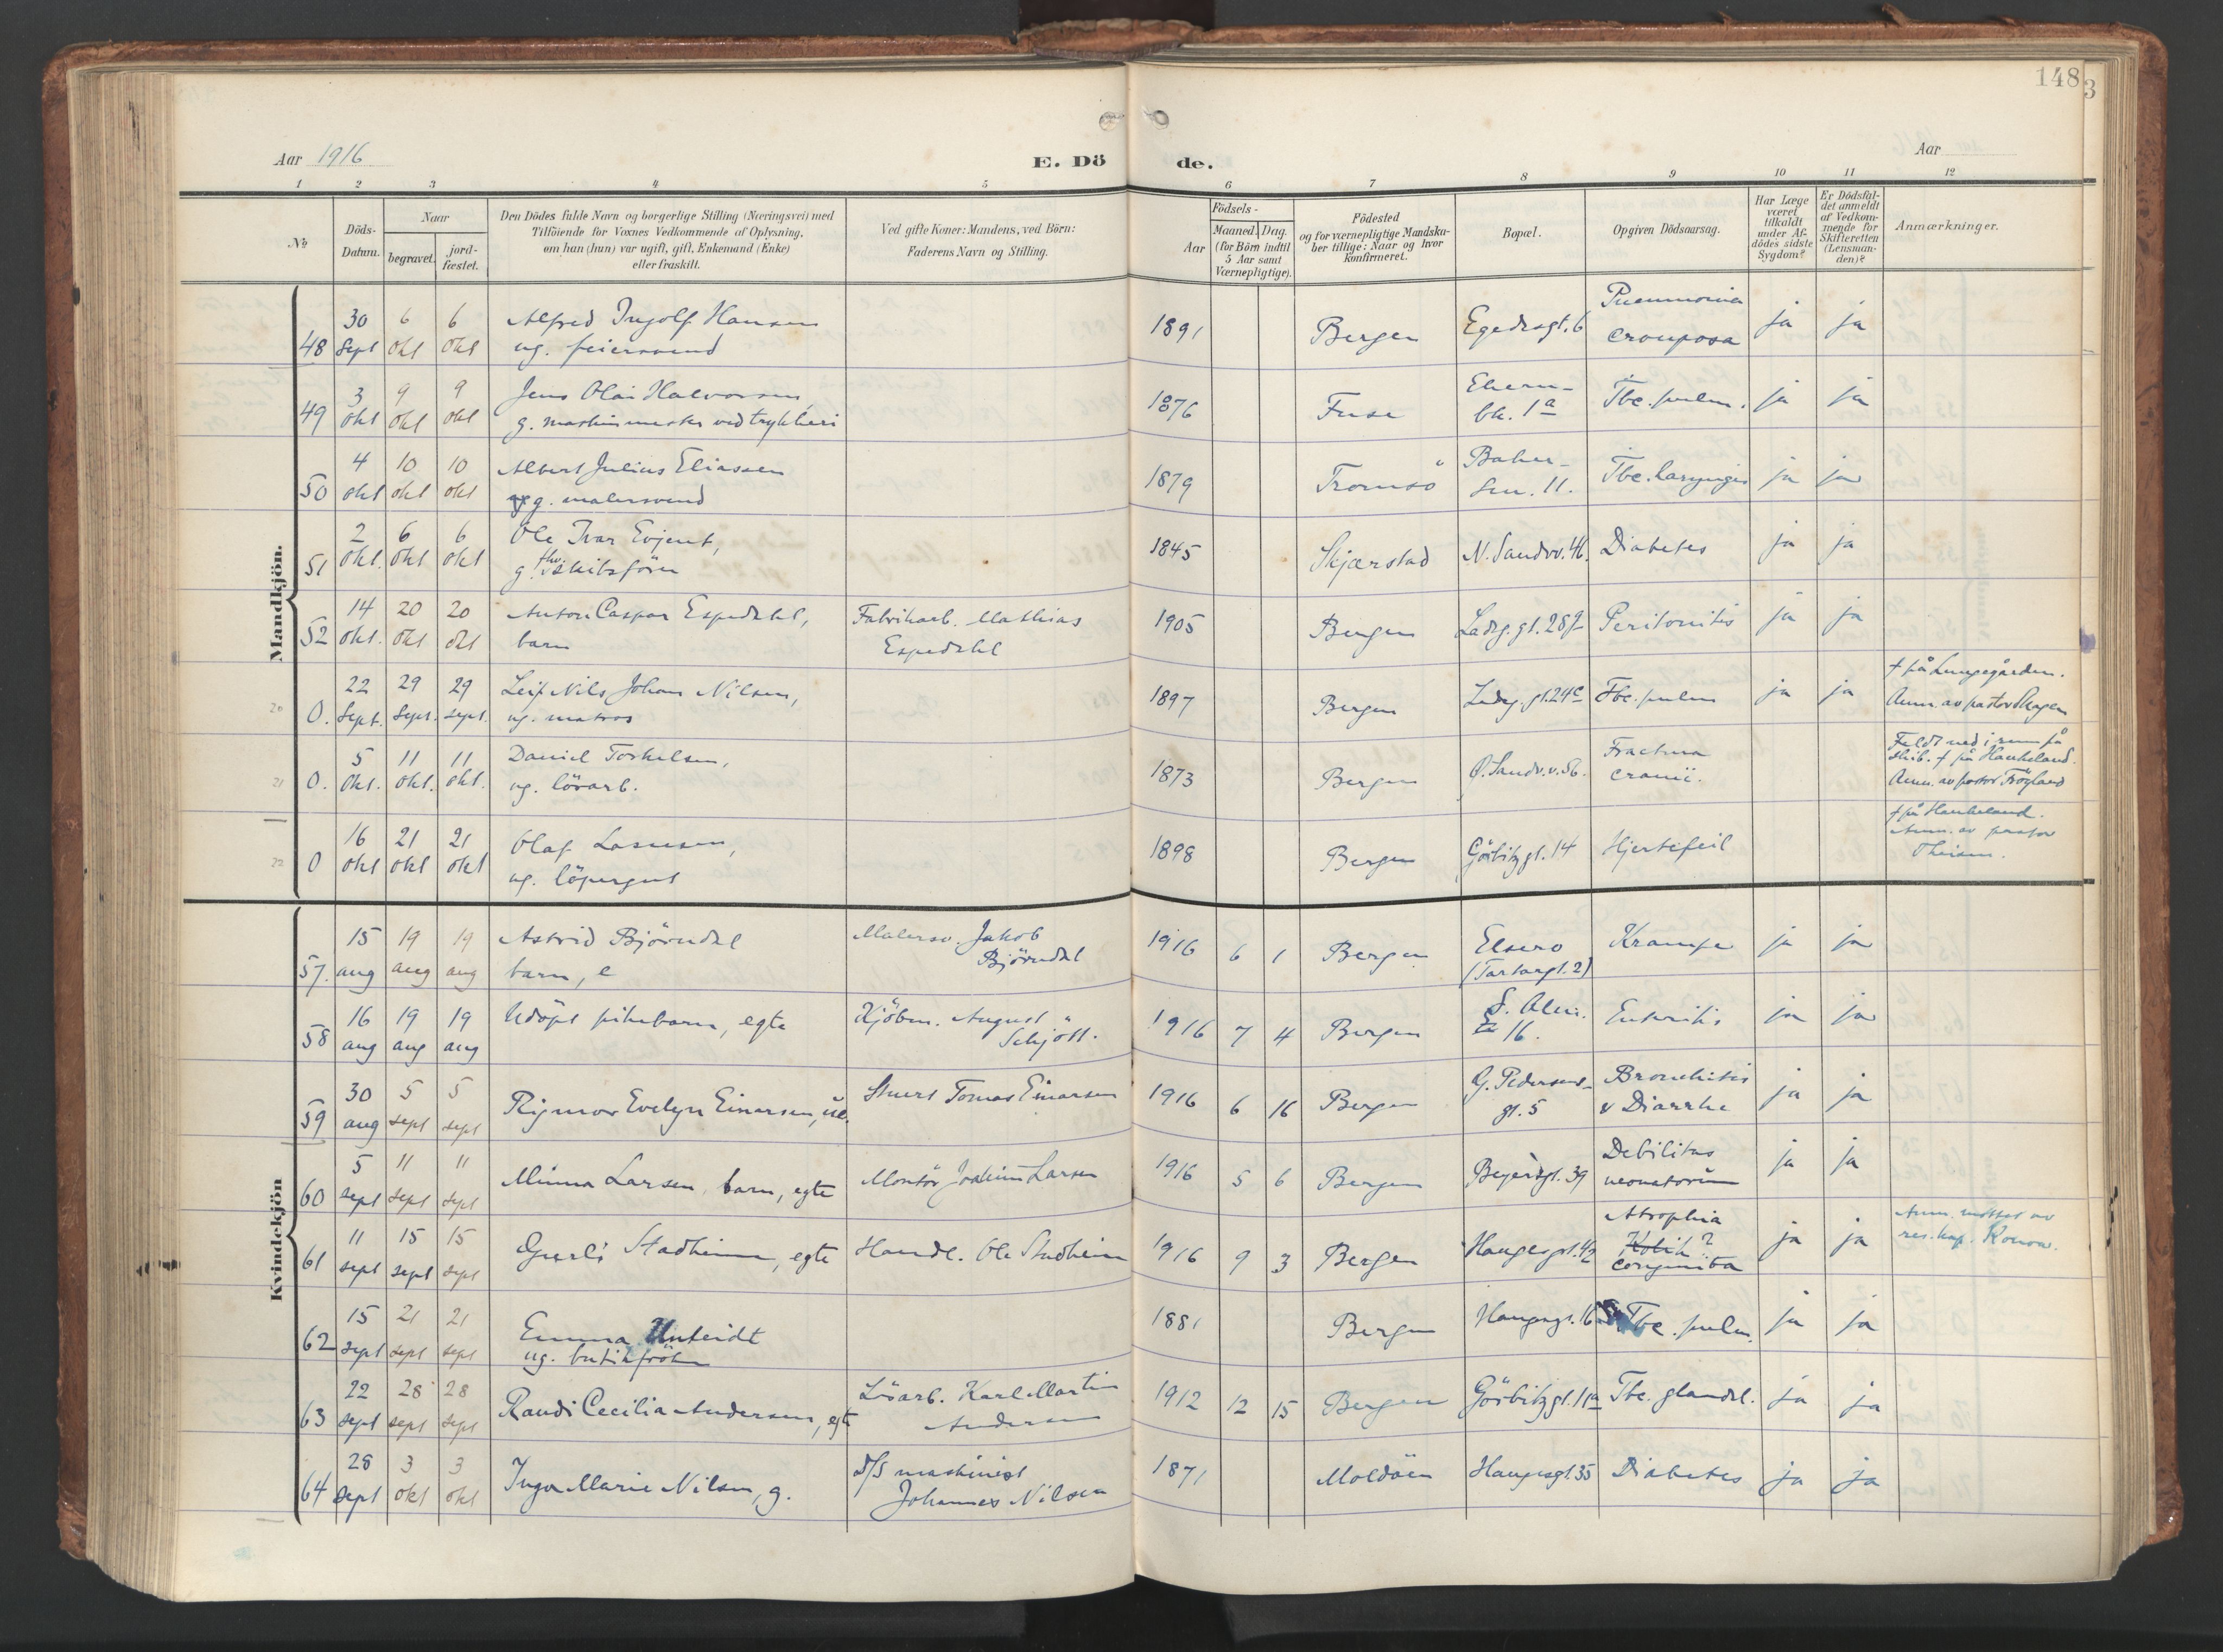 148
3
Aar 1916
E. Dö
de.
Aar
1 2 3 4 5 6 7 8 9 10 11 12
№
Döds-
Datum.
Naar
begravet.
jord-
fæstet.
Den Dödes fulde Navn og borgerlige Stilling (Næringsvei) med
Tilföiende for Voxnes Vedkommende af Oplysning,
om han (hun) var ugift, gift, Enkemand (Enke)
eller fraskilt.
Ved gifte Koner: Mandens, ved Börn:
Faderens Navn og Stilling.
Födsels-
Aar
Maaned. Dag.
(for Börn indtil
5 Aar samt
Værnepligtige).
Födested
og for værnepligtige Mandska-
ber tillige: Naar og hvor
konfirmeret.
Bopæl.
Opgiven Dödsaarsag.
Har Læge
været
tilkaldt
under Af-
dödes sidste
Sygdom?
Er Dödsfal-
det anmeldt
af Vedkom-
mende for
Skifteretten
(Lensman-
den)?
Anmærkninger.
Mandkjön.
48 30 Sept 6 okt 6 okt Alfred Ingolf Hansen
ug. feiersvend
1891 Bergen Egedesgt. 6 Pneumonia
crouposa ja ja
49 3 okt 9 okt 9 okt Jens Olai Halvorsen,
g. maskinmester ved trykkeri
1876 Fuse
bk. 1a Tbc. pulm. ja ja
50 4 okt 10 okt 10 okt Albert Julius Eliassen
g. malersvend
1879 Tromsö Baker-
sm. 11. Tbc. laryngis ja ja
51 2 okt. 6 okt 6 okt Ole Ivar Evjent,
g. fhv. skibsförer
1845 Skjærstad N. Sandvv. 46. Diabetes ja ja
52 14 okt. 20 okt 20 okt Anton Caspar Espedahl,
barn
Fabrikarb. Mathias
Espedahl
1905 Bergen Ladeg. gt. 28 Peritonitis ja ja
20 0. 22 Sept. 29 Sept. 29 sept. Leif Nils Johan Nilsen,
ug. matros
1897 Bergen Ladeg. gt. 24c Tbc. pulm ja ja
† på Lungegården.
Anm. av pastor Skagen
21 0. 5 Okt. 11 okt. 11 okt. Daniel Torkelsen,
ug. lösarb.
1873 Bergen Ö. Sandv. v. 56. Fractura
cranii.
Feldt ned i rum på
skib. † på Haukeland.
Anm. av pastor Frögland
22 0 16 okt 21 okt 21 okt Olaf Larsen,
ug. löpergut
1898 Bergen Görbitzgt. 14 Hjertefeil
† på Haukeland.
Anm. av pastor
Kvindekjön
57. 15 aug 19 aug 19 aug Astrid Björndal
barn, e
Malersv. Jakob
Björndal
1916 6 1 Bergen Elsero
(Tartargt. 2) Krampe ja ja
58 16 aug 19 aug 19 aug Udöpt pikebarn, egte
Kjöbm. August
Schjött.
1916 7 4 Bergen S. Alm.
16. Enteritis ja ja
59 30 aug 5 sept 5 sept Rigmor Evelyn Einarsen, ue.
Stuert Tomas Einarsen
1916 6 16 Bergen G. Pedersens-
gt. 5 Bronchitis
v Diarrhe ja ja
60 5 sept 11 sept 11 sept Minna Larsen, barn, egte
Montör Joakim Larsen
1916 5 6 Bergen Beyersgt. 39 Debilitas
neonatorum ja ja
61 11 sept 15 sept 15 sept Gurli Stadheim, egte
Handl. Ole Stadheim
1916 9 3 Bergen Haugesgt. 42 Atrophia
Kolik?
congenita ja ja
Anm. mottat av
res. kap. Konow.
62 15 sept 21 sept 21 sept Emma Unteidt
ug. butikfrök
1881 Bergen Haugesgt. 16 Tbc. pulm. ja ja
63 22 sept 28 sept 28 sept Randi Cecilia Andersen, egte
Lösarb. Karl Martin
Andersen
1912 12 15 Bergen Görbitzgt. 11a Tbc. glandel. ja ja
64 28 sept 3 okt 3 okt Inga Marie Nilsen, g.
D/S maskinist
Johannes Nilsen
1871 Moldöen Haugesgt. 35 Diabetes ja ja